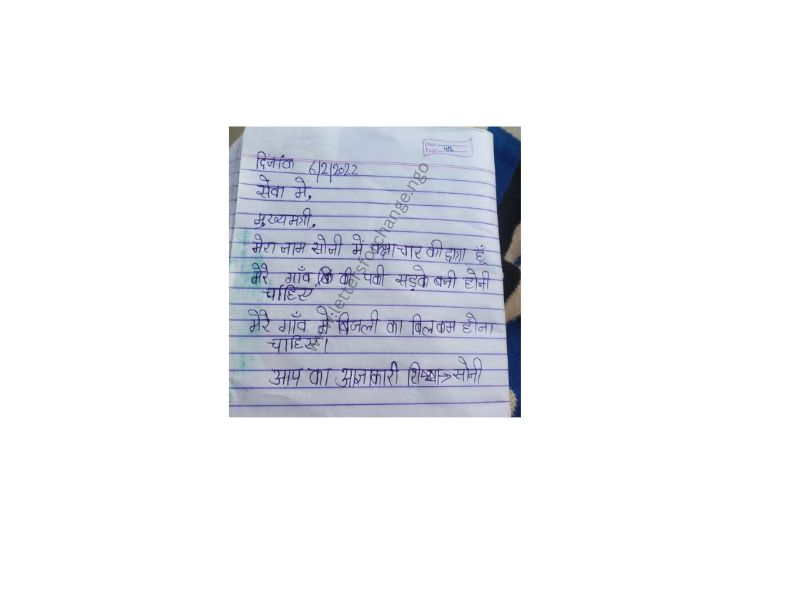 दिनांक 6/2/2022
सेवा मे,
मुख्यमत्री,
मेरा नाम सोनी में कक्षा चार की छात्रा हूँ
मेरे गाँव की पकी सड़के बनी होनी
चाहिए
मेरे गाँव में बिजली का बिल कम होना
चाहिए।
आप का आज्ञाकारी शिष्या→सोनी
www.lettersforchange.ngo